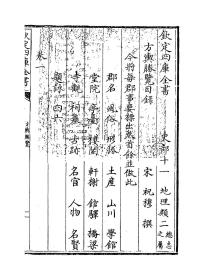 欽定四庫全書 史部十一 地理類二 總志之屬
方輿勝覽目録
宋 祝穆 撰
今將每郡事要標出卷首餘並倣此
郡名 風俗 形勝 土産 山川 學館
堂院 亭臺 樓閣 軒榭 館驛 橋梁
寺觀 祠墓 古跡 名宦 人物 名賢
題詠 四六
卷一
欽定四庫全書
方輿勝覽